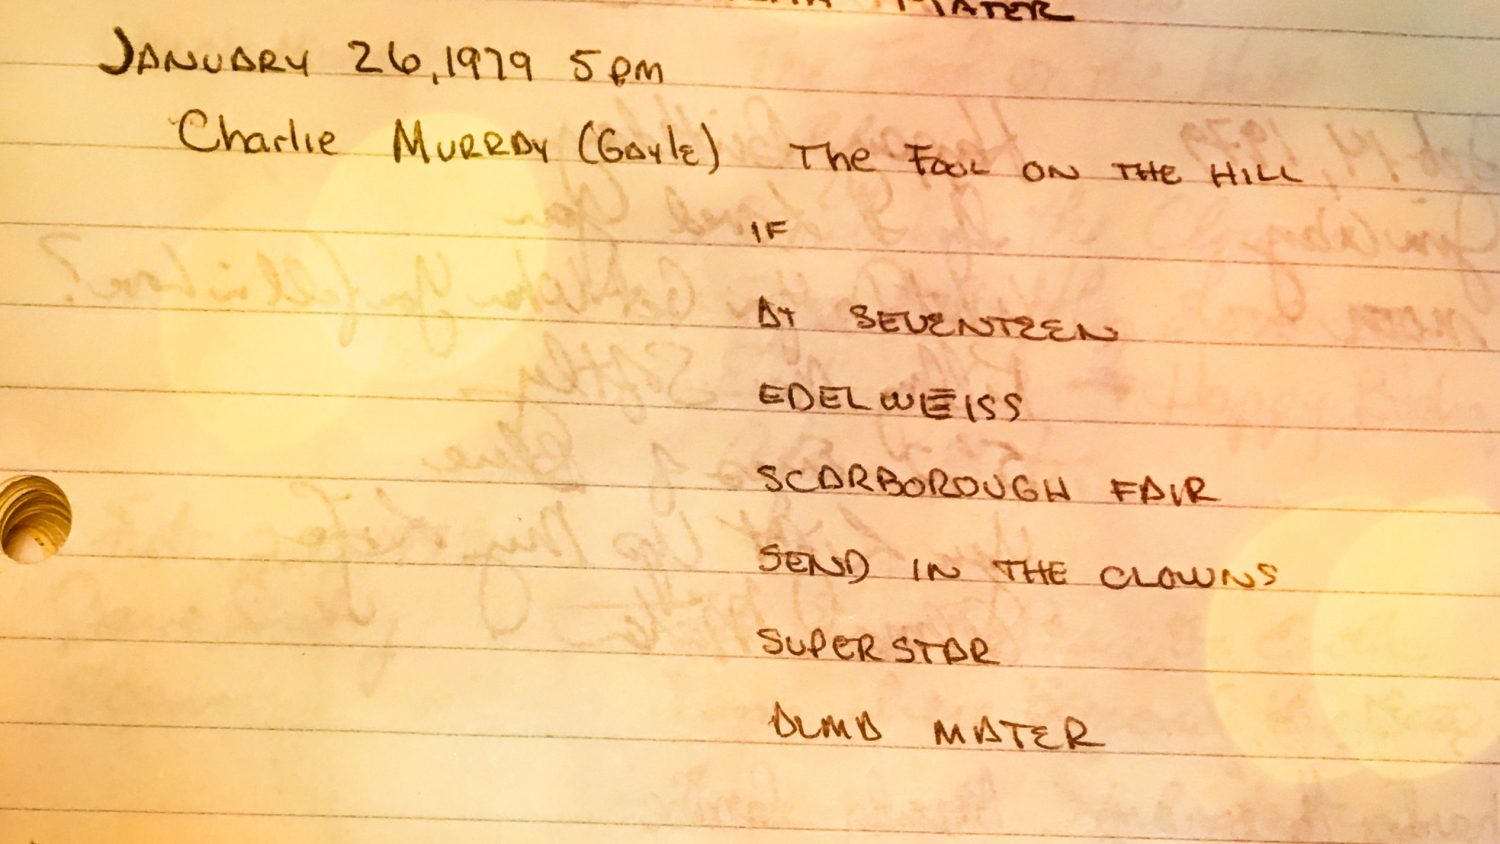 MATER
JANUARY 26, 1979 5 PM
Charlie MURRAY (Gayle) The FOOL ON THE HILL
IF
AT SEVENTEEN
EDELWEISS
SCARBOROUGH FAIR
SEND IN THE CLOWNS
SUPERSTAR
ALMA MATER